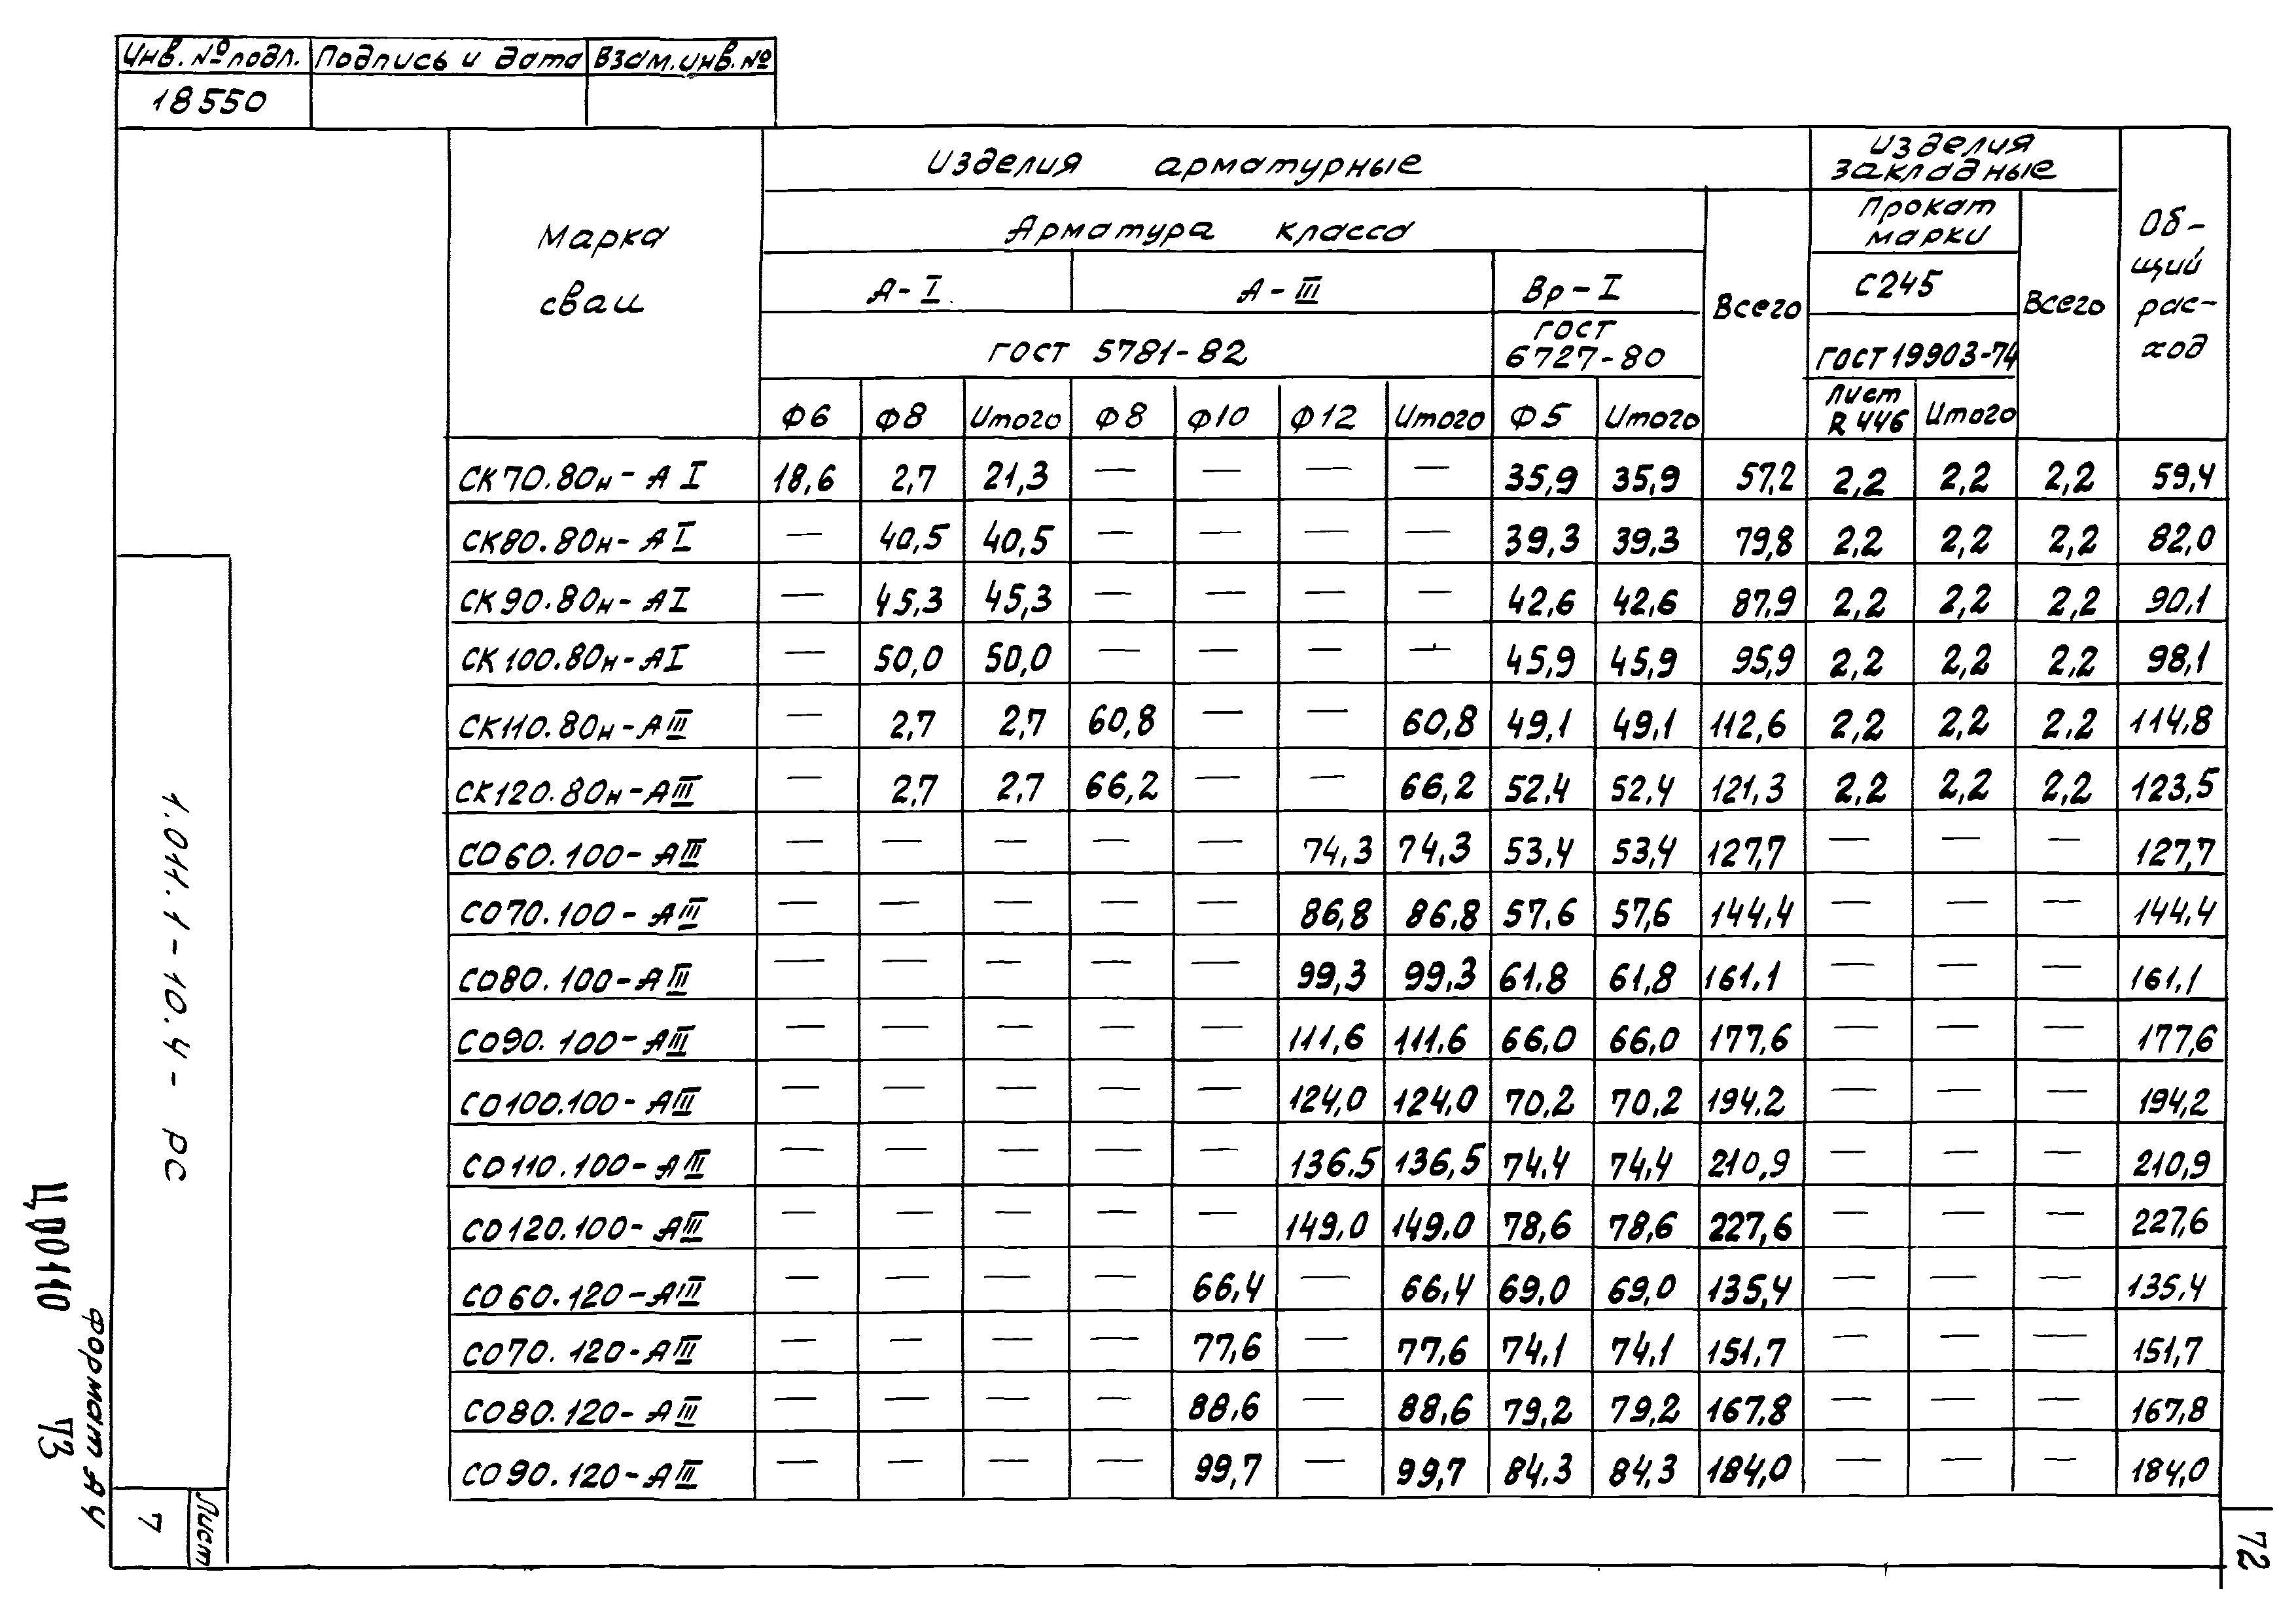 Инв. № подл. Подпись и дата Взам. инв. №
18550
Марка сваи
Изделия арматурные
Изделия закладные
Общий расход
Арматура класса
Всего
Прокат марки
Всего
А-I А-III Вр-I
С245
ГОСТ 5781-82 ГОСТ 6727-80
ГОСТ 19903-74
Ф6 Ф8 Итого Ф8 Ф10 Ф12 Итого Ф5 Итого Лист R 446 Итого
СК70.80н-АI 18,6 2,7 21,3 — — — — 35,9 35,9 57,2 2,2 2,2 2,2 59,4
СК80.80н-АI — 40,5 40,5 — — — — 39,3 39,3 79,8 2,2 2,2 2,2 82,0
СК90.80н-АI — 45,3 45,3 — — — — 42,6 42,6 87,9 2,2 2,2 2,2 90,1
СК100.80н-АI — 50,0 50,0 — — — — 45,9 45,9 95,9 2,2 2,2 2,2 98,1
СК110.80н-АIII — 2,7 2,7 60,8 — — 60,8 49,1 49,1 112,6 2,2 2,2 2,2 114,8
СК120.80н-АIII — 2,7 2,7 66,2 — — 66,2 52,4 52,4 121,3 2,2 2,2 2,2 123,5
СО60.100-АIII — — — — — 74,3 74,3 53,4 53,4 127,7 — — — 127,7
СО70.100-АIII — — — — — 86,8 86,8 57,6 57,6 144,4 — — — 144,4
СО80.100-АIII — — — — — 99,3 99,3 61,8 61,8 161,1 — — — 161,1
СО90.100-АIII — — — — — 111,6 111,6 66,0 66,0 177,6 — — — 177,6
СО100.100-АIII — — — — — 124,0 124,0 70,2 70,2 194,2 — — — 194,2
СО110.100-АIII — — — — — 136,5 136,5 74,4 74,4 210,9 — — — 210,9
СО120.100-АIII — — — — — 149,0 149,0 78,6 78,6 227,6 — — — 227,6
СО60.120-АIII — — — — 66,4 — 66,4 69,0 69,0 135,4 — — — 135,4
СО70.120-АIII — — — — 77,6 — 77,6 74,1 74,1 151,7 — — — 151,7
СО80.120-АIII — — — — 88,6 — 88,6 79,2 79,2 167,8 — — — 167,8
СО90.120-АIII — — — — 99,7 — 99,7 84,3 84,3 184,0 — — — 184,0
1.011.1-10.4- РС
Лист
7
Ц00110 73
формат А4
72